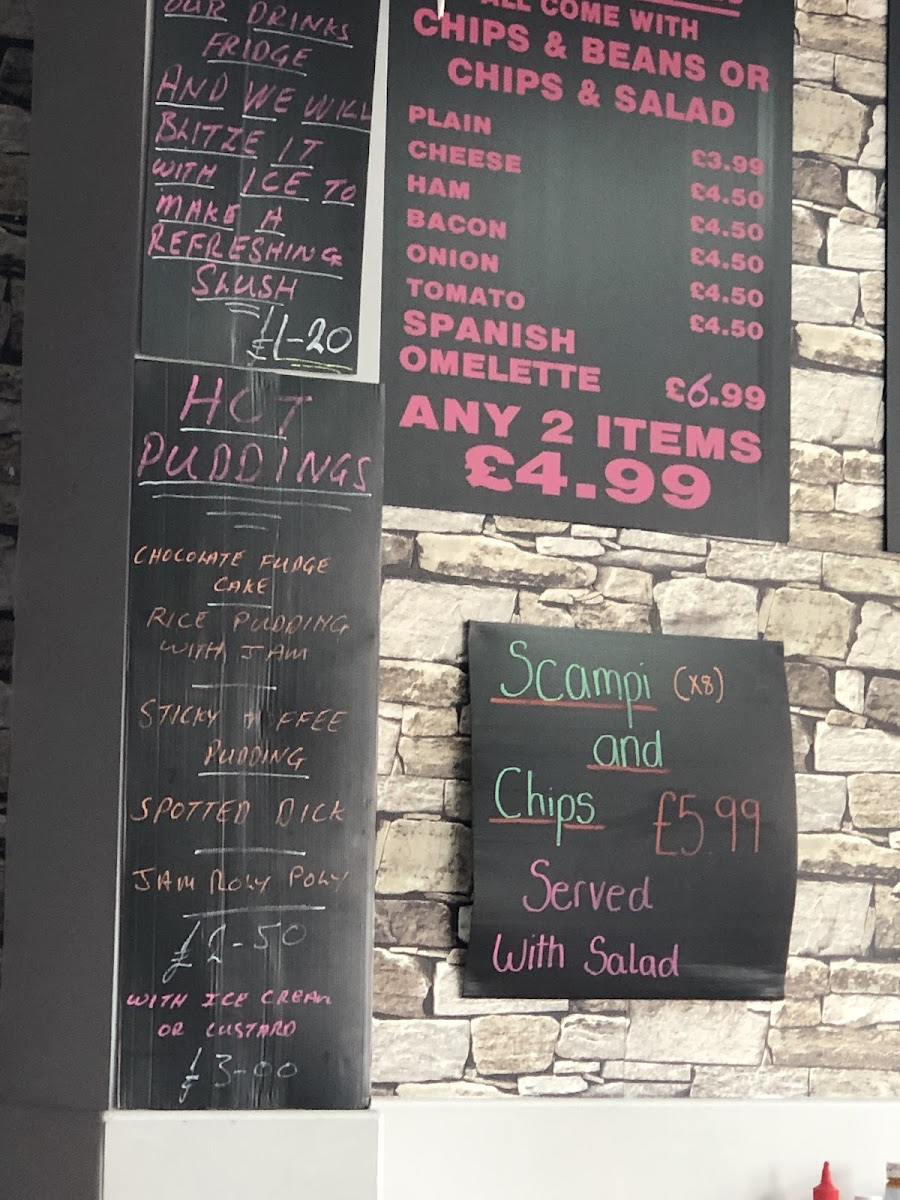 OUR DRINKS
FRIDGE
AND WE WILL
BLITZE IT
WITH ICE TO
MAKE A
REFRESHING
SLUSH
£1-20
HOT
PUDDINGS
CHOCOLATE FUDGE
CAKE
RICE PUDDING
WITH JAM
STICKY T FFEE
PUDDING
SPOTTED DICK
JAM ROLY POLY
£2-50
WITH ICE CREAM
OR CUSTARD
£3-00
ALL COME WITH
CHIPS & BEANS OR
CHIPS & SALAD
PLAIN £3.99
CHEESE £4.50
HAM £4.50
BACON £4.50
ONION £4.50
TOMATO £4.50
SPANISH
OMELETTE £6.99
ANY 2 ITEMS
£4.99
Scampi (x8)
and
Chips £5.99
Served
With Salad